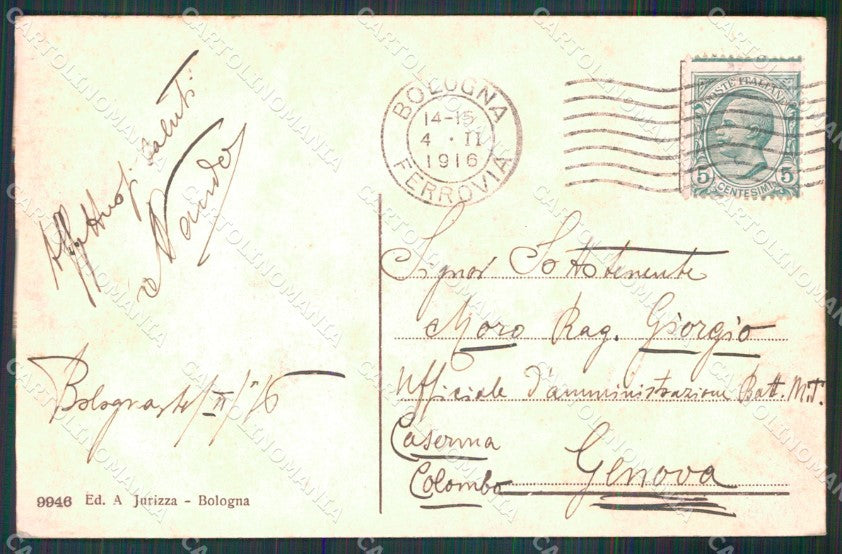 Affettuosi saluti
Nando
Bologna 4/II/16
9946 Ed. A Jurizza - Bologna
BOLOGNA
14-15
4 · II
1916
FERROVIA
POSTE ITALIANE
5 CENTESIMI 5
Signor Sottotenente
Moro Rag. Giorgio
Ufficiale d'amministrazione Batt. M.T.
Caserma
Colombo
Genova
CARTOLINOMANIA